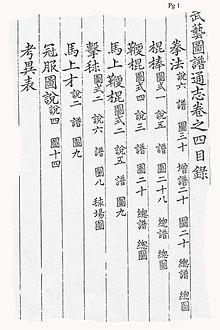 Pg 1
武藝圖譜通志卷之四目錄
拳法說六 譜 圖三十 增譜二十 圖二十 總譜 總圖
棍棒圖一 說二 譜 圖十八 總譜 總圖
鞭棍圖式四 說三 譜 圖二十 總譜 總圖
馬上鞭棍圖式二 說五 譜 圖九
擊毬圖式二 說六 譜 圖八 毬場圖
馬上才說二 譜 圖九
冠服圖說說四 圖十四
考異表